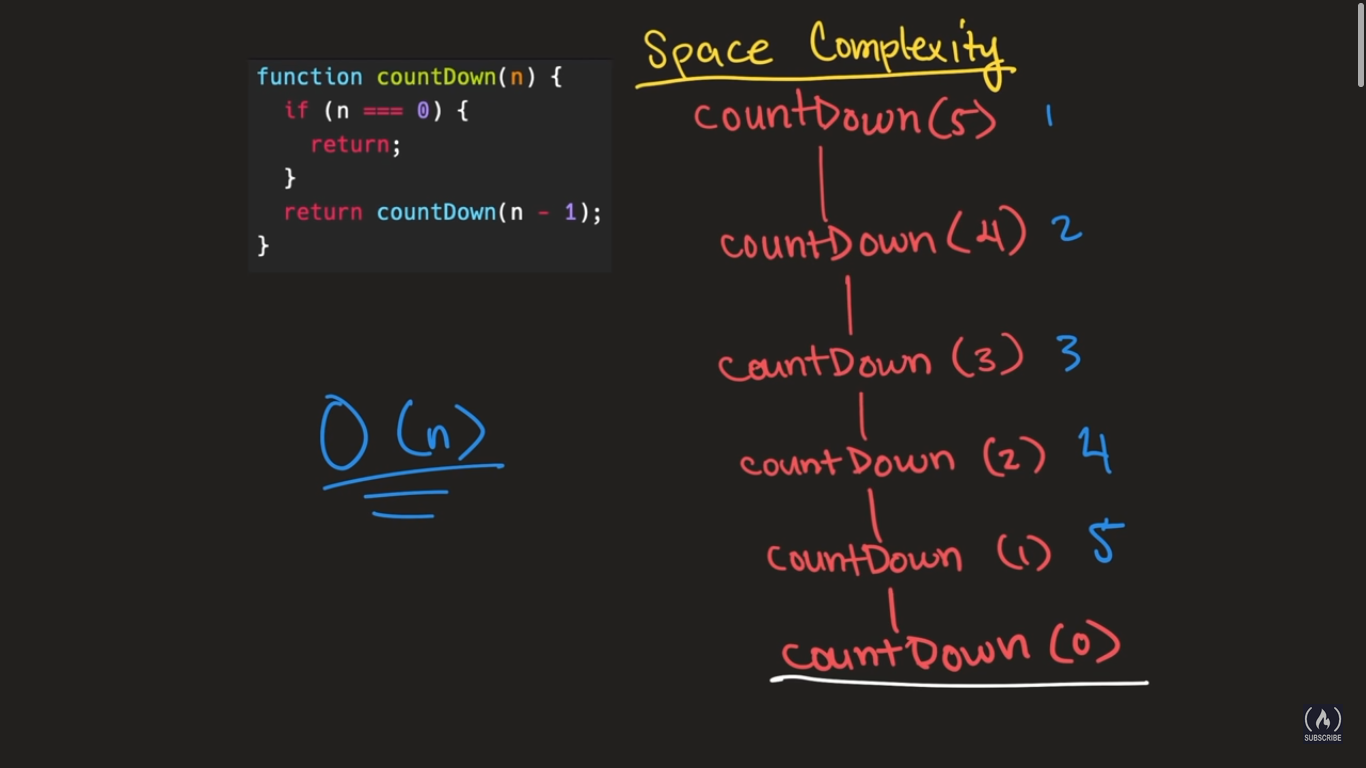 function countDown(n) {
if (n === 0) {
return;
}
return countDown(n - 1);
}
O(n)
Space Complexity
countDown(5) 1
countDown(4) 2
countDown(3) 3
countDown(2) 4
countDown(1) 5
countDown(0)
SUBSCRIBE